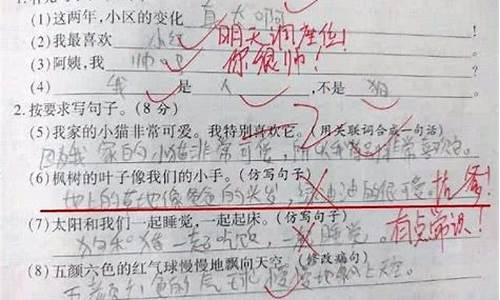 (1)这两年,小区的变化 真大啊
(2)我最喜欢 小红 明天调座位!
(3)阿姨,我 帅吧 你很帅!
(4) 我 是 人 ,不是 狗
2.按要求写句子。(8分)
(5)我家的小猫非常可爱。我特别喜欢它。(用关联词合成一句话)
因为我家的小猫非常可爱,所以我 非常喜欢它。
(6)枫树的叶子像我们的小手。(仿写句子)
地上的草地像爸爸的头发,绿油油的很可爱。
(7)太阳和我们一起睡觉,一起起床。(仿写句子) 有点常识!
一起吃饭,一起睡觉。
(8)五颜六色的红气球慢慢地飘向天空。(修改病句)
五颜六色的气球慢慢地飘上天空。